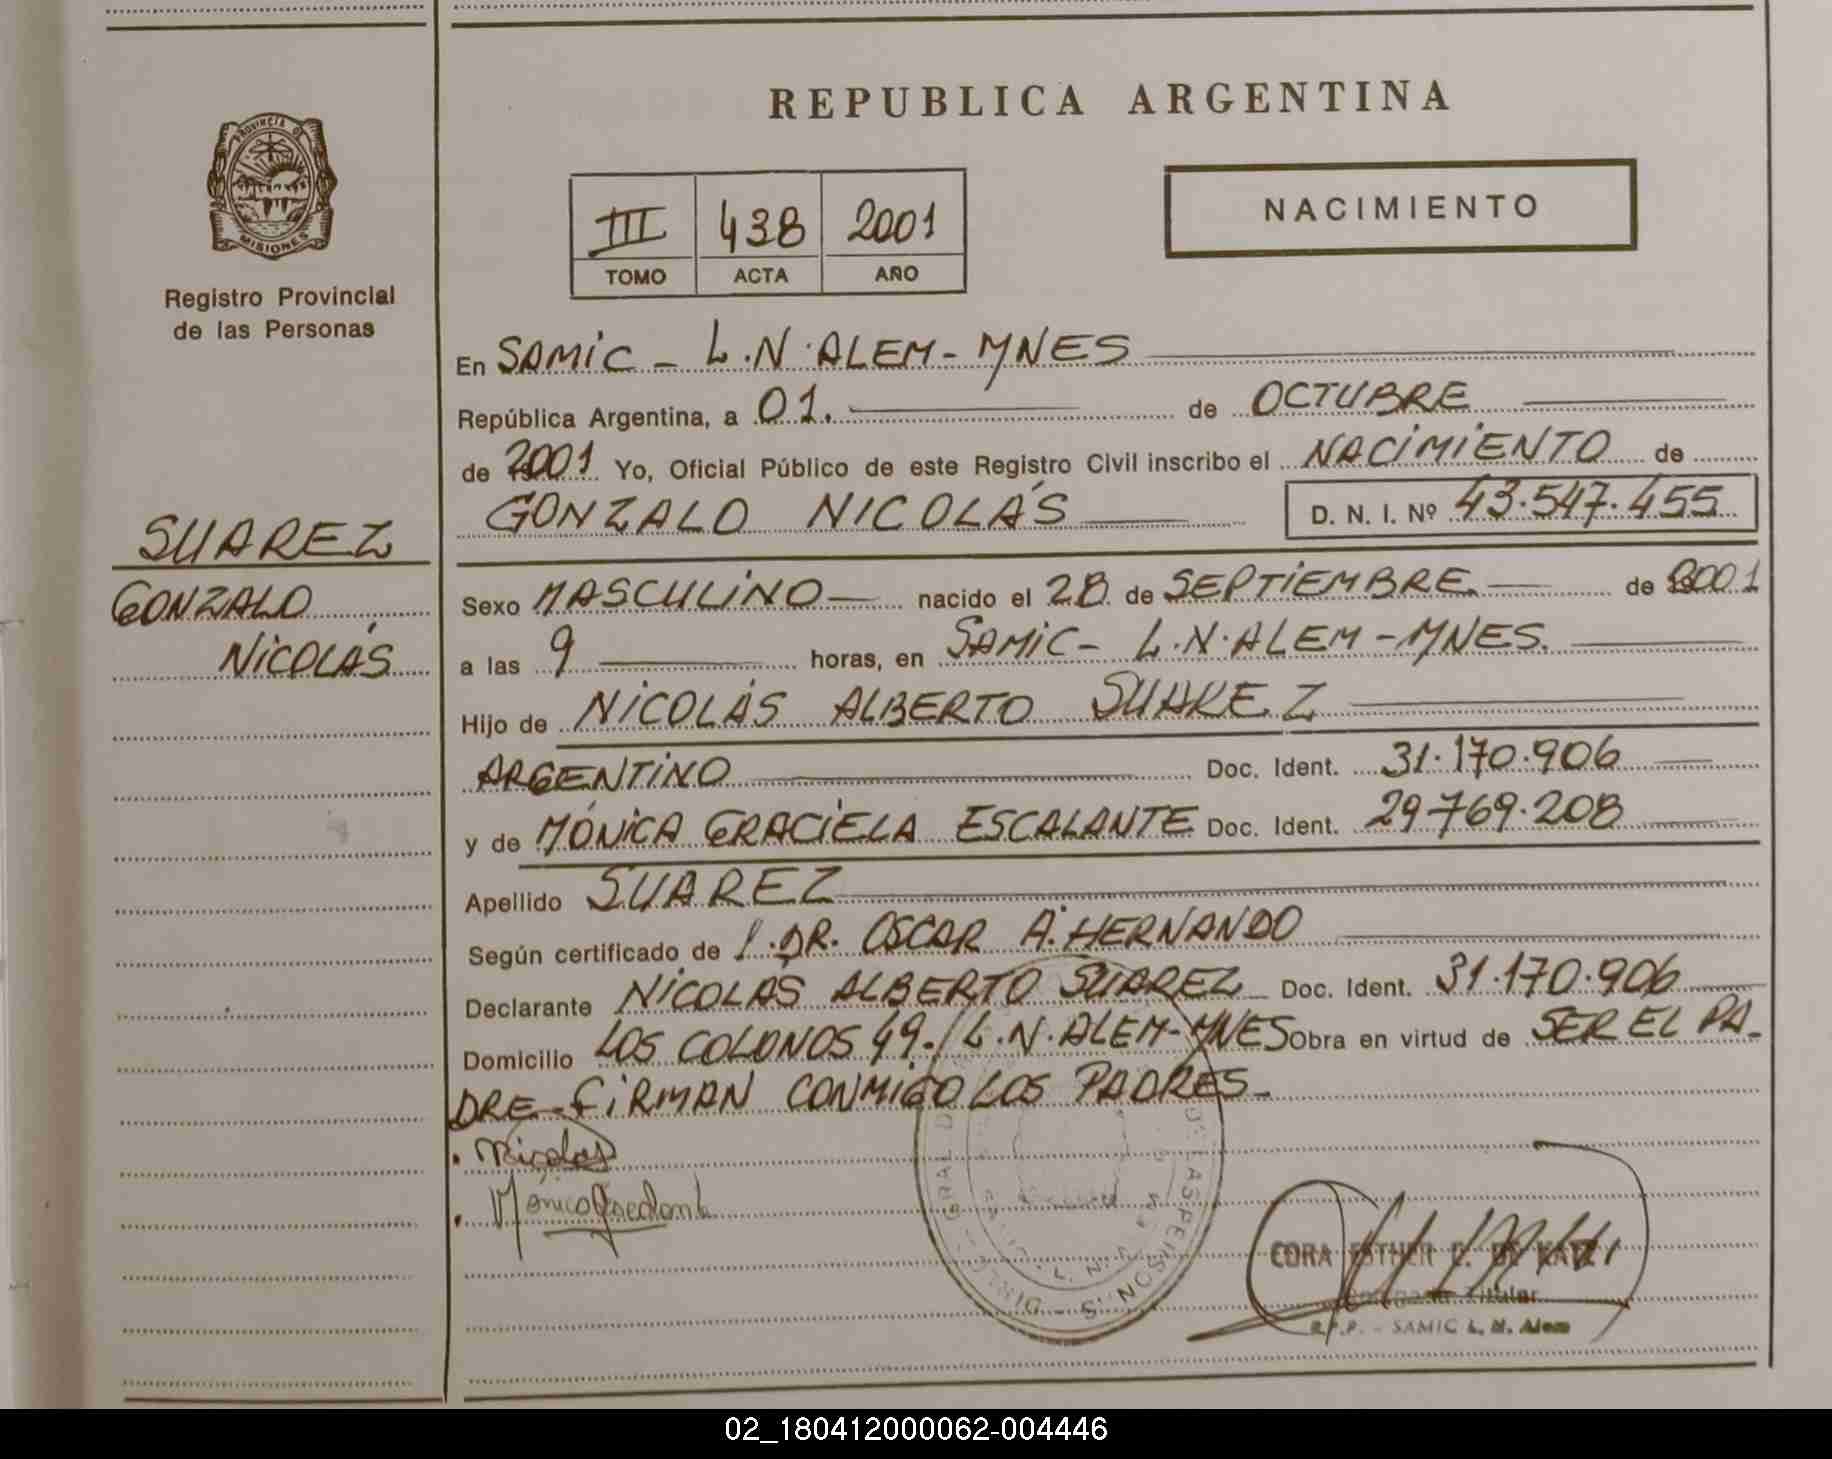 REPUBLICA ARGENTINA
PROVINCIA DE
MISIONES
Registro Provincial
de las Personas
III 438 2001
TOMO ACTA AÑO
NACIMIENTO
En SAMIC - L.N. ALEM - MNES
República Argentina, a 01. de OCTUBRE
de 2001 Yo, Oficial Público de este Registro Civil inscribo el NACIMIENTO de
GONZALO NICOLÁS D. N. I. Nº 43.547.455
SUAREZ
GONZALO
NICOLÁS
Sexo MASCULINO nacido el 28 de SEPTIEMBRE de 2001
a las 9 horas, en SAMIC - L.N. ALEM - MNES.
Hijo de NICOLÁS ALBERTO SUAREZ
ARGENTINO Doc. Ident. 31.170.906
y de MÓNICA GRACIELA ESCALANTE Doc. Ident. 29.769.208
Apellido SUAREZ
Según certificado de DR. OSCAR A. HERNANDO
Declarante NICOLÁS ALBERTO SUAREZ Doc. Ident. 31.170.906
Domicilio LOS COLONOS 49. L.N. ALEM - MNES Obra en virtud de SER EL PA-
DRE - FIRMAN CONMIGO LOS PADRES -
Nicolas
CORA ESTHER
Titular
R.P.P. - SAMIC L. N. Alem
02_180412000062-004446